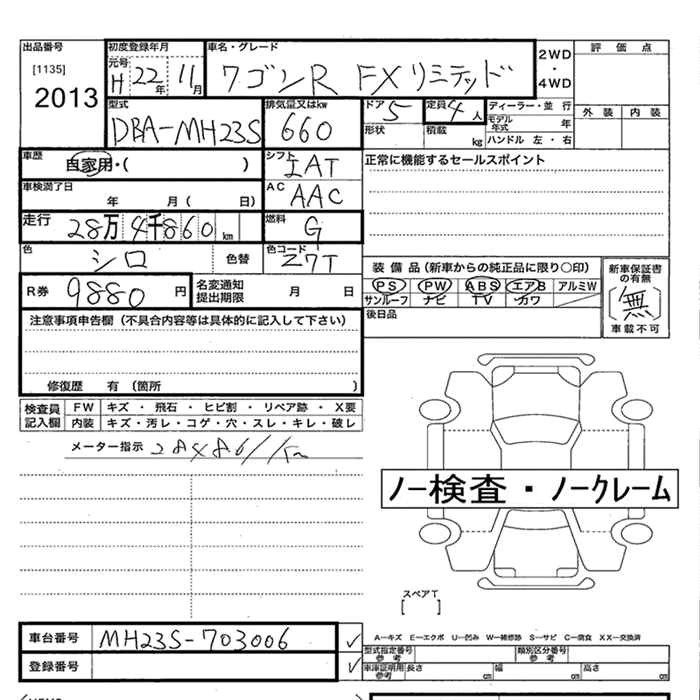 出品番号 初度登録年月 車名・グレード 2WD・4WD 評価点
[1135] 元号 H 22年 11月 ワゴンR FXリミテッド
2013
外装 内装
型式 DBA-MH23S 排気量又はkw 660 ドア 5 定員 4人 ディーラー・並行
形状 積載 kg モデル年式 年
ハンドル 左・右
車歴 自家用・( ) シフト IAT 正常に機能するセールスポイント
車検満了日 年 月( 日) AC AAC
走行 28万4千860km 燃料 G
色 シロ 色替 色コード Z7T
装備品(新車からの純正品に限り○印) 新車保証書の有無
R券 9880円 名変通知提出期限 月 日 PS PW ABS エアB アルミW 無
サンルーフ ナビ TV カワ 車載不可
注意事項申告欄(不具合内容等は具体的に記入して下さい) 後日品
修復歴 有(箇所 )
検査員記入欄 FW キズ・飛石・ヒビ割・リペア跡・X要
内装 キズ・汚レ・コゲ・穴・スレ・キレ・破レ
メーター指示
ノー検査・ノークレーム
スペアT
[ ]
車台番号 MH23S-703006 ✓ A—キズ E—エクボ U—凹み W—補修跡 S—サビ C—腐食 XX—交換済
型式指定番号 参考 類別区分番号 参考
登録番号 ✓ 車庫証明用参考 長さ cm 幅 cm 高さ cm